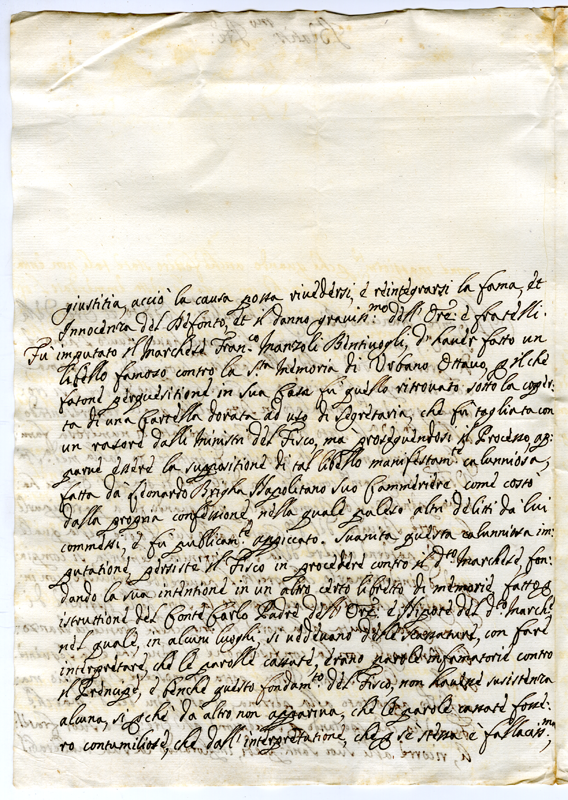 giustitia, acciò la causa possa rivedersi, è reintegrarsi la fama, et
Innocenza del Defonto, et il danno graviss:mo dell' Ore: è fratelli.
Fù imputato il Marchese Fran:co Manzoli Bentivogli, d'haver fatto un
libello famoso contro la S:ta memoria di Urbano Ottavo, il che
fatone perquisitione in sua Casa fù quello ritrovato sotto la coper=
ta di una Cartella dorata ad uso di Segretaria, che fù tagliata con
un rasore dalli Ministri del Fisco, mà proseguendosi il Processo ap=
parve essere la suppositione di tal libello manifestam:te calunniosa,
fatta da Leonardo Napolitano suo Cammeriere come costò
dalla propria confessione, nella quale palesò altri delitti da lui
commessi, è fù publicam:te appiccato. Suanita questa calunniosa im=
putatione persiste il Fisco in procedere contro il d:to Marchese, fon=
dando la sua intentione in un altro certo libretto di memorie fatto p
istruttione del Conte Carlo Padre dell' Ore: è Nipote del d:o March:e
nel quale, in alcuni luoghi si vedevano delle scassature, con fare
interpretare, che le parolle cassate, erano parole infamatorie contro
il Prencipe, è benche questo fondam:to del Fisco, non havesse susistenza
alcuna, si perchè da altro non appariva, che le parole cassate fosse=
ro contumiliose, che dall' interpretatione, che p se stessa è fallaciss:ma